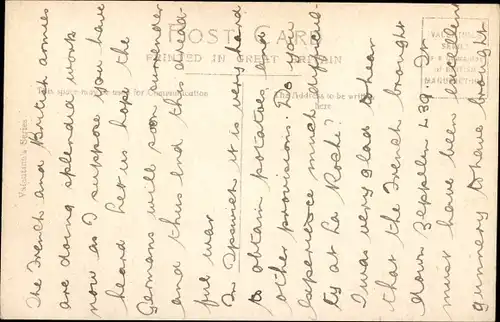 POST CARD
PRINTED IN GREAT BRITAIN
This space may be used for communication
The Address to be written here
Valentine's Series
The French and British armies
are doing splendid work
now as I suppose you have
heard. Let us hope the
Germans will soon surrender
and thus end this dread-
ful war
In Ipswich it is very hard
to obtain potatoes and
other provisions. Do you
experience much difficul-
ty at La Roche?
I was very glad to hear
that the French brought
down Zeppelin L39. It
must have been excellent
gunnery to have